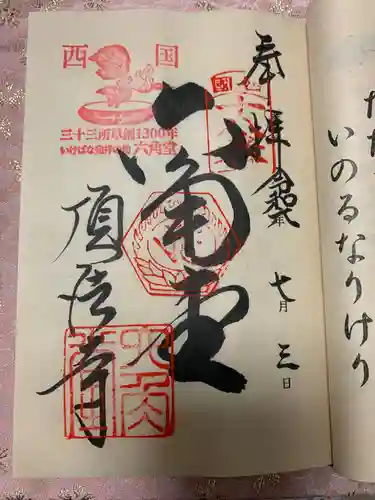 奉拝
令和元年
七月三日
六角堂
頂法寺
西国
三十三所草創1300年
いけばな発祥の地 六角堂
いのるなりけり